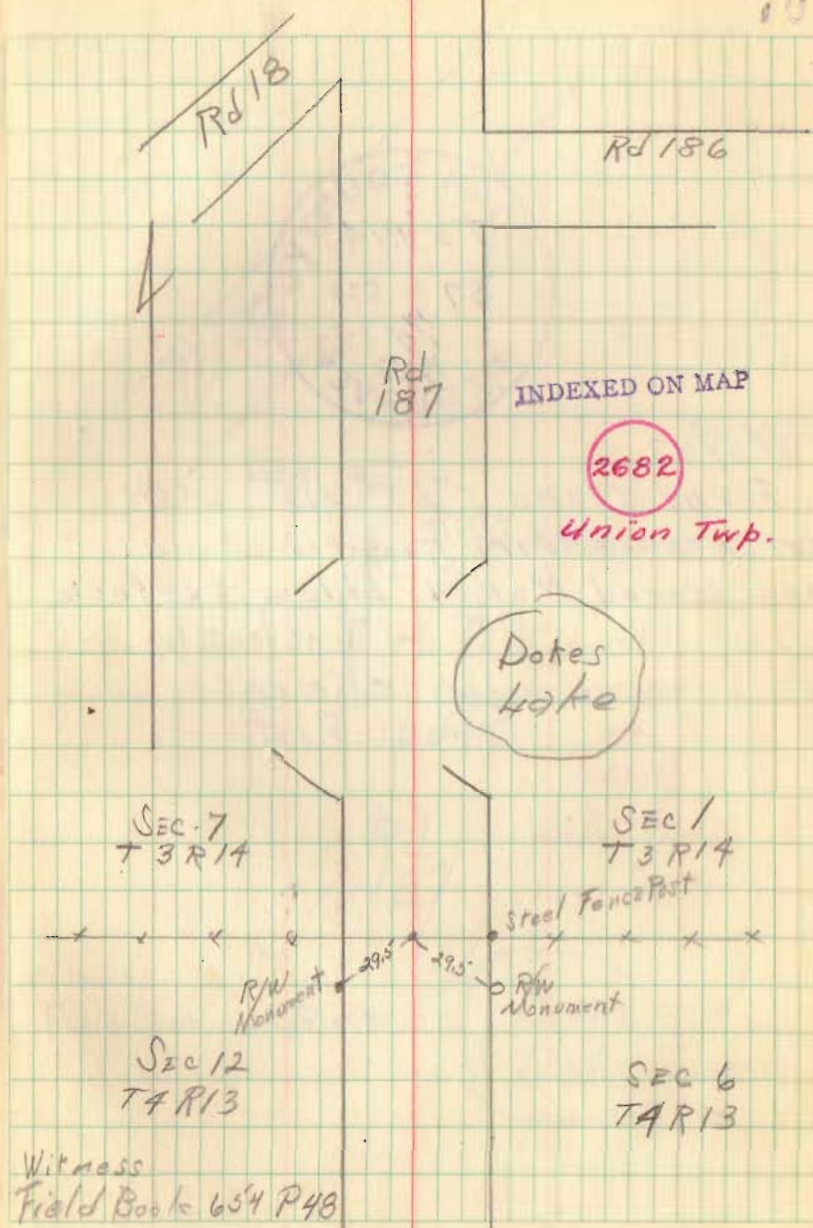 Rd 18
Rd 186
Rd
187
INDEXED ON MAP
2682
Union Twp.
Dokes
Lake
SEC-7
T 3 R 14
SEC 1
T 3 R 14
Steel Fence Post
29.5
29.5
R/W
Monument
R/W
Monument
SEC 12
T4 R13
SEC 6
T4 R13
Witness
Field Book 654 P48